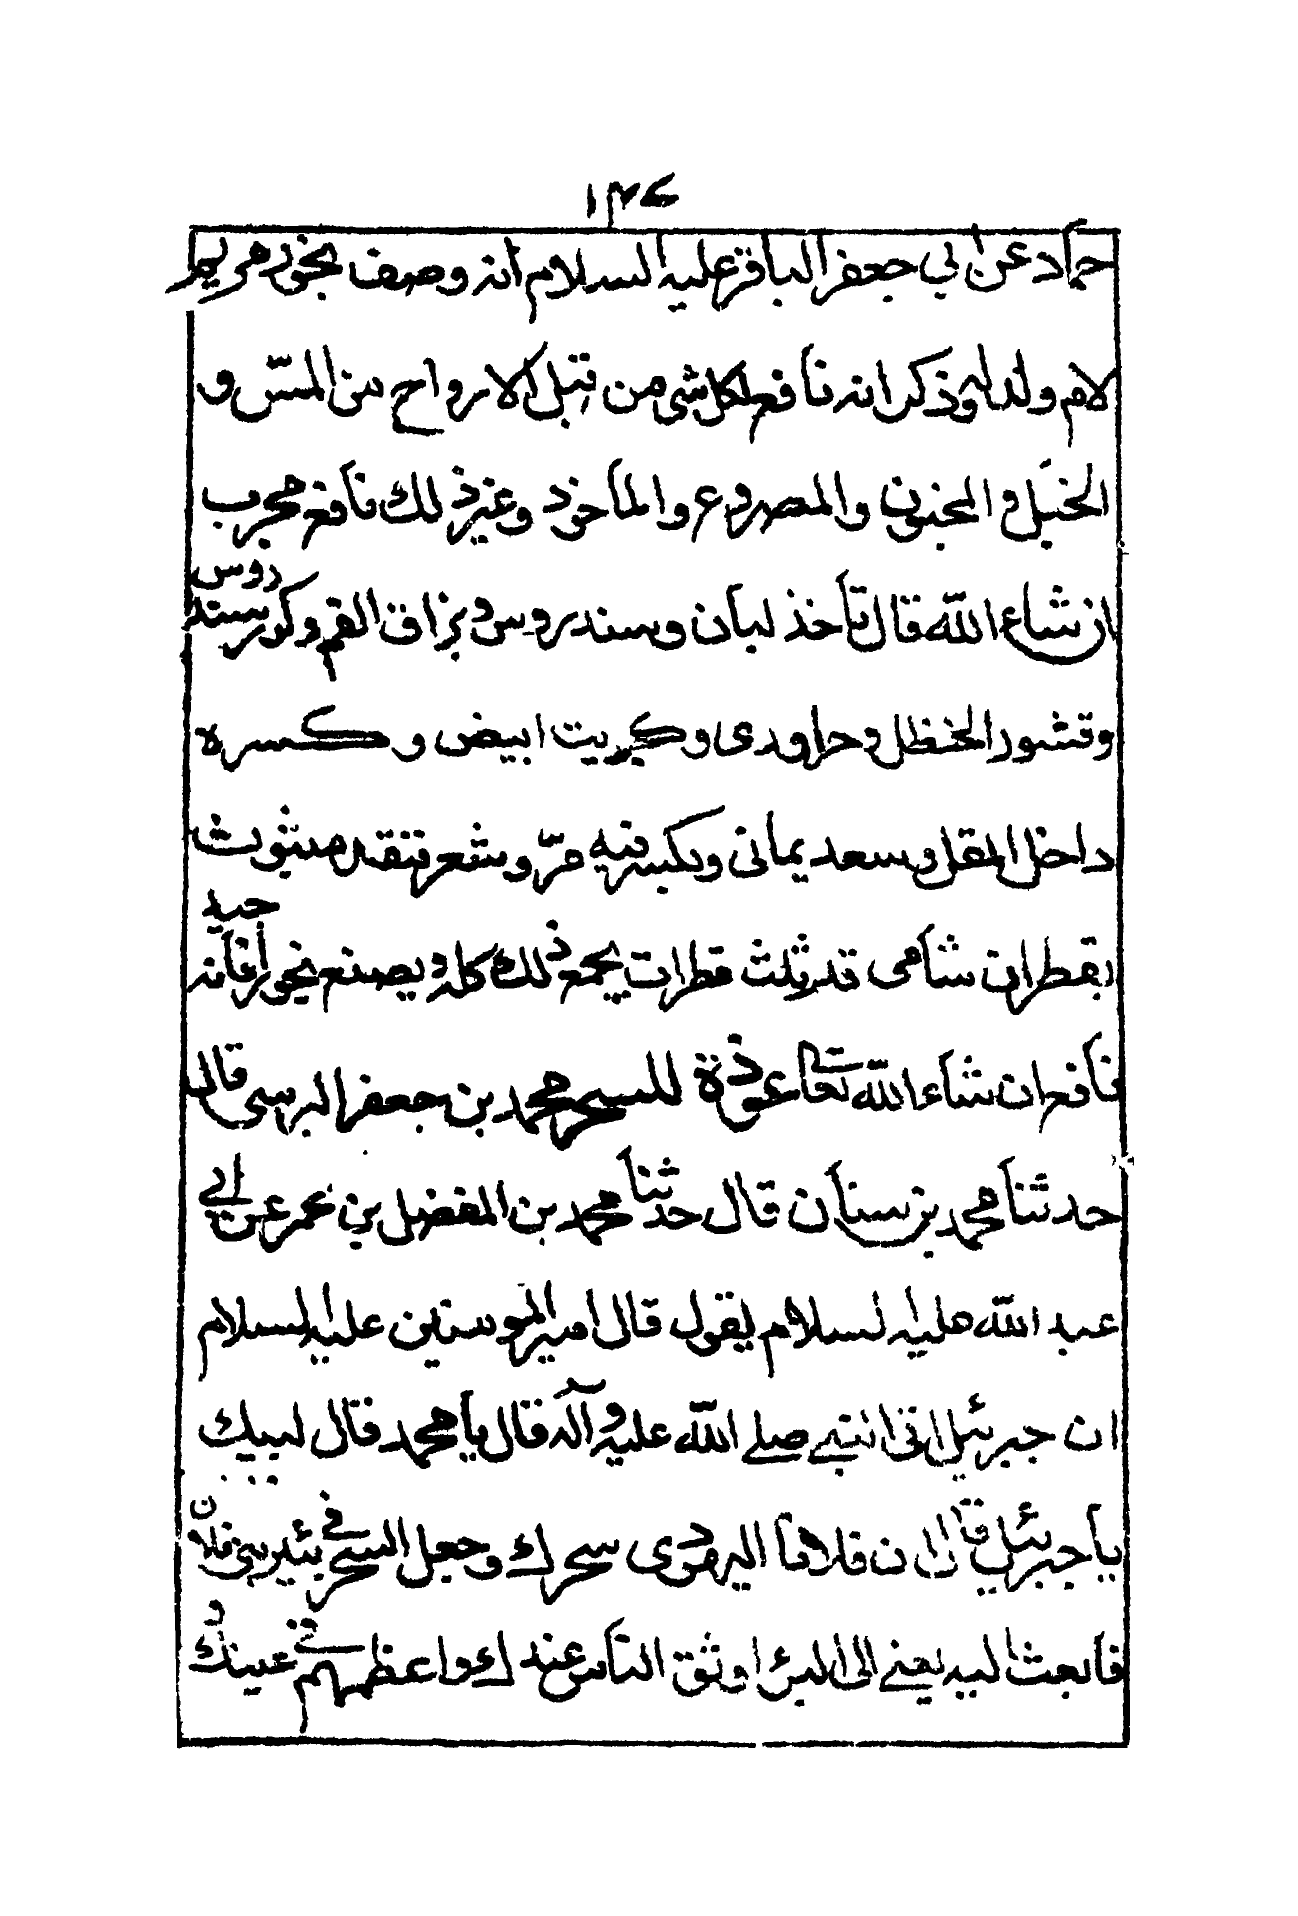 ١٣٤
حماد عن ابي جعفر الباقر عليه السلام انه وصف بخور مريم
لام ولد له وذكر انه نافع لكل شي من قبل الارواح من المسّ و
الخبل و المجنون والمصروع والمأخوذ وغير ذلك نافع مجرب
ان شاء الله قال تأخذ لبان وسندروس وبزاق الفم وكور سند
وقشور الحنظل وحراوری وكبريت ابيض وكسره
داخل المقل وسعد يمانی ويكبس فيه مرّ وشعر قنفذ مبثوث
بقطران شامی قدر ثلث قطرات يجمع ذلك كله ويصنع بخورا فانه
نافع ان شاء الله تعالى عوذة للسحر محمد بن جعفر البرسی قال
حدثنا محمد بن سنان قال حدثنا محمد بن المفضل بن عمر عن ابي
عبد الله عليه لسلام يقول قال امير المومنين عليه السلام
ان جبرئيل اتى النبي صلى الله عليه وآله قال يا محمد قال لبيك
يا جبرئيل قال ان فلانا اليهودی سحرك وجعل السحر فی بئر بنی فلان
فابعث اليه يعنی الى البئر اوثق الناس عندك واعظمهم فی عينك